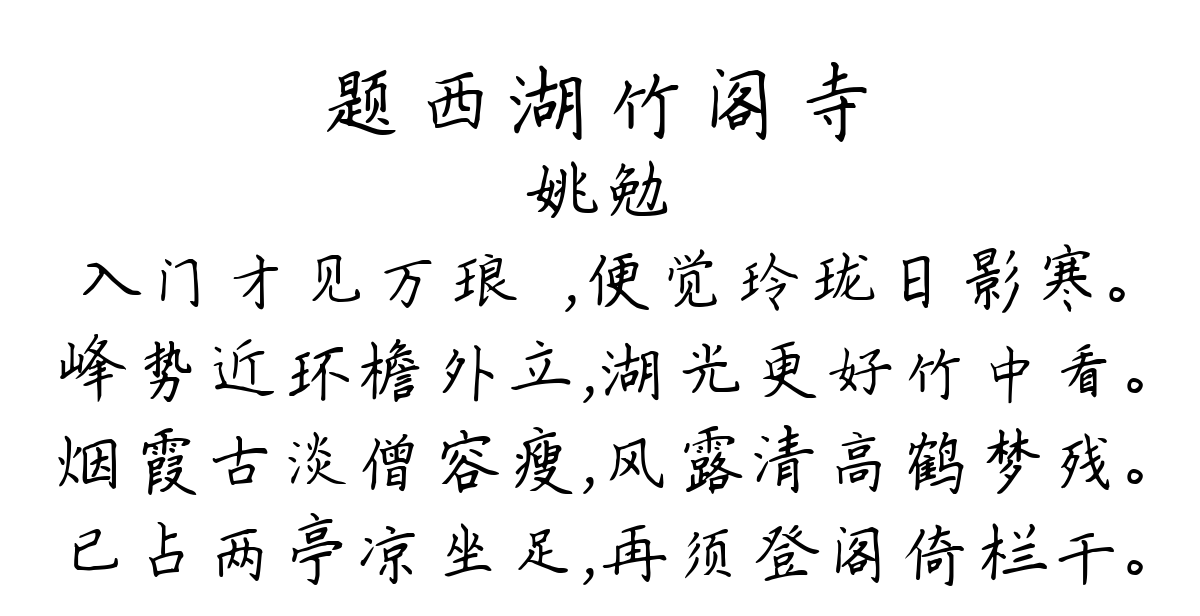 题西湖竹阁寺
姚勉
入门才见万琅 ,便觉玲珑日影寒。
峰势近环檐外立,湖光更好竹中看。
烟霞古淡僧容瘦,风露清高鹤梦残。
已占两亭凉坐足,再须登阁倚栏干。